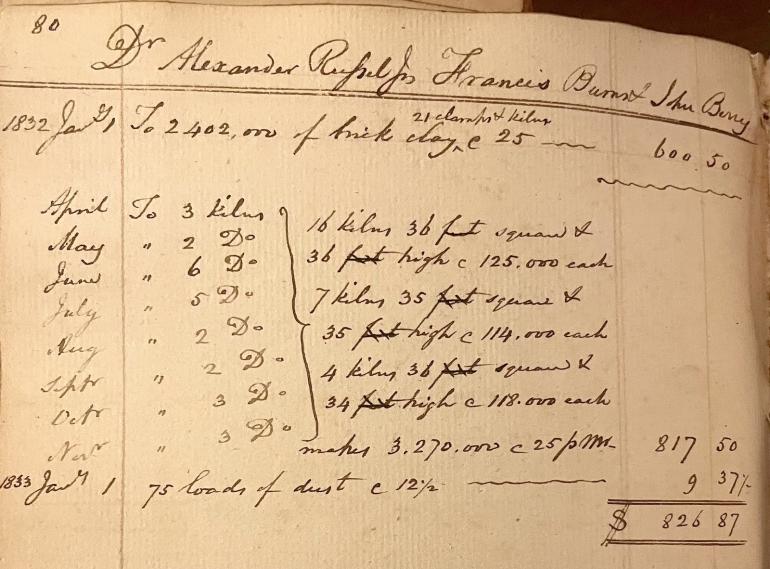 80
Dr Alexander Russel Jr Francis Burns & John Berry
1832 Jany 1 To 2402,000 of brick clay, 21 clamps & kilns c 25 600.50
April To 3 kilns
May " 2 Do
June " 6 Do
July " 5 Do
Aug " 2 Do
Septr " 2 Do
Octr " 3 Do
Novr " 3 Do
16 kilns 36 feet square &
36 feet high c 125.000 each
7 kilns 35 feet square &
35 feet high c 114.000 each
4 kilns 36 feet square &
34 feet high c 118.000 each
makes 3.270.000 c 25 p M 817 50
1833 Jany 1 75 loads of dust c 12½ 9 37½
$ 826 87